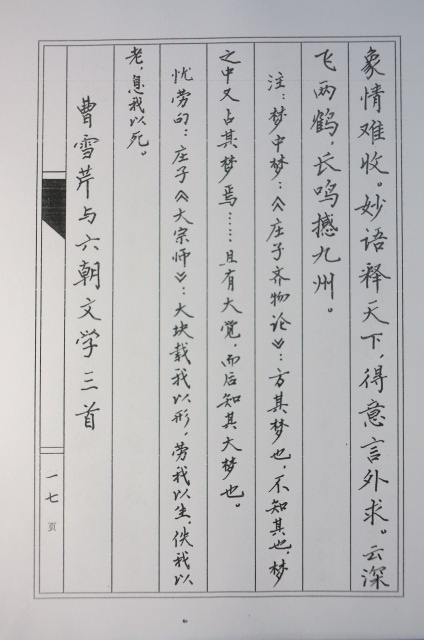 象情难收。妙语释天下，得意言外求。云深
飞两鹤，长鸣撼九州。
注：梦中梦：《庄子齐物论》：方其梦也，不知其也，梦
之中又占其梦焉……且有大觉，而后知其大梦也。
忧劳句：庄子《大宗师》：大块载我以形，劳我以生，佚我以
老，息我以死。
曹雪芹与六朝文学三首
一七页